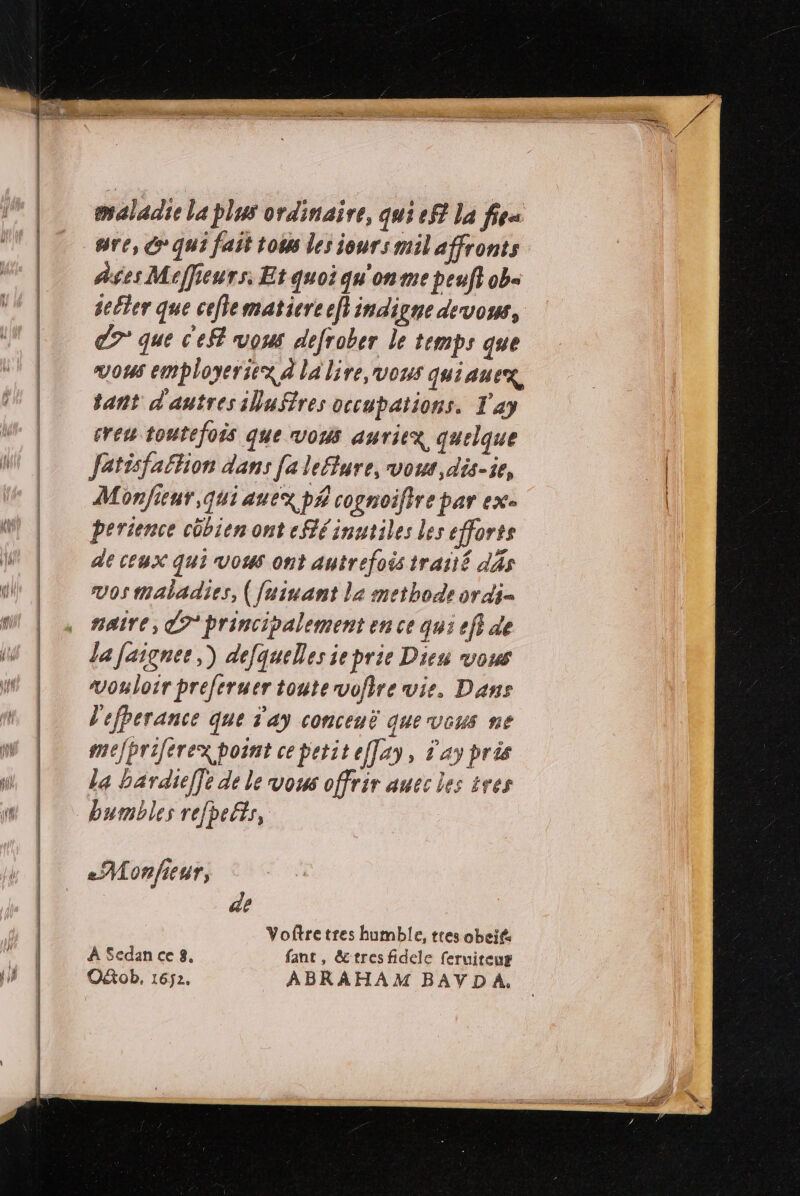 maladie la plus ordinaire, qui est la fie-
ure, & qui fait tous les iours mil affronts
à ses Messieurs. Et quoi qu'on me peust ob-
iecter que ceste matiere est indigne de vous,
& que c'est vous desrober le temps que
vous employeriez à la lire, vous qui auez
tant d'autres illustres occupations. I'ay
creu toutefois que vous auriez quelque
satisfaction dans sa lecture, vous, dis-ie,
Monsieur, qui auez pû cognoistre par ex-
perience cōbien ont esté inutiles les efforts
de ceux qui vous ont autrefois traité dās
vos maladies, (suiuant la methode ordi-
naire, & principalement en ce qui est de
la saignee,) desquelles ie prie Dieu vous
vouloir preseruer toute vostre vie. Dans
l'esperance que i'ay conceuë que vous ne
mespriserez point ce petit essay, i'ay pris
la hardiesse de le vous offrir auec les tres
humbles respects,
Monsieur,
de
Vostre tres humble, tres obeis-
A Sedan ce 8. sant, & tres fidele seruiteur
Octob. 1652. ABRAHAM BAVDA.